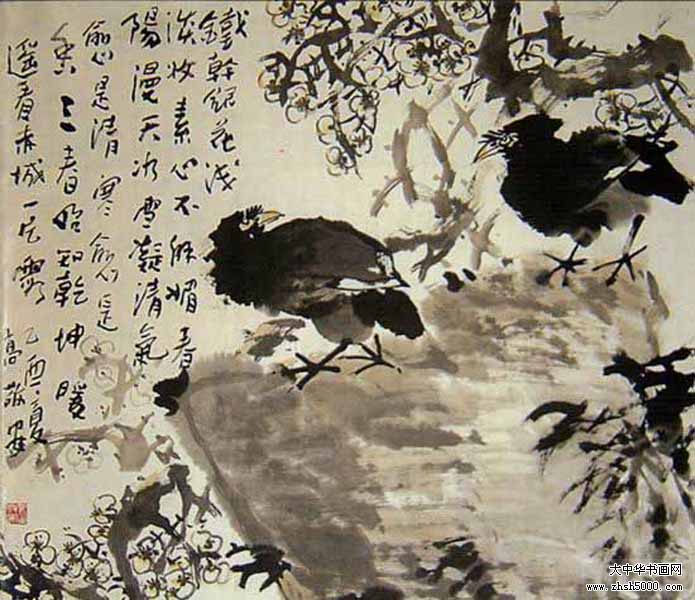 鐵幹銀花浅
淡妆素心不解媚春
陽漫天冰雪凝清氣
愈是清寒愈是
香三春始知乾坤暖
遥看赤城一片霞
乙酉夏
高
大中华书画网
www.zhsh5000.com